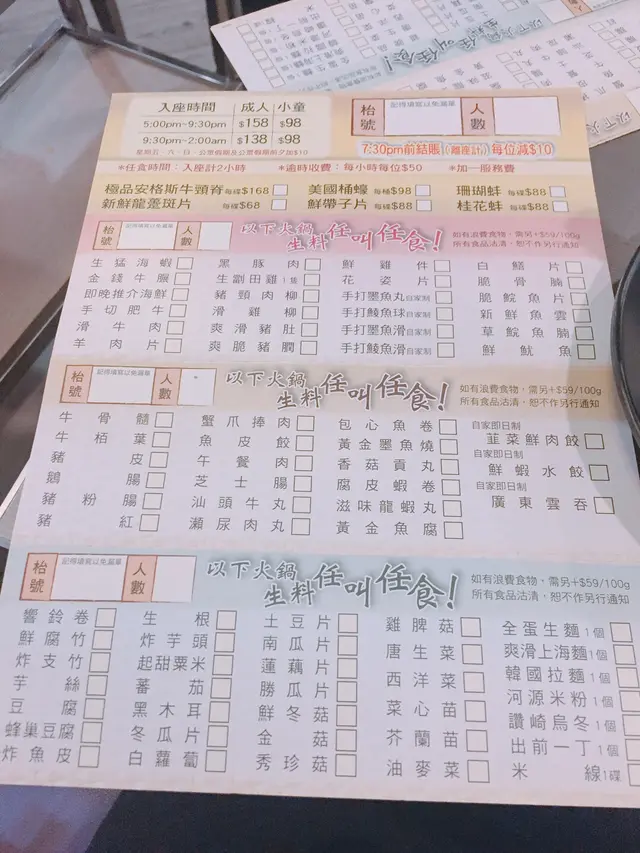 入座時間 成人 小童
5:00pm~9:30pm $158 $98
9:30pm~2:00am $138 $98
枱號 記得填寫以免漏單 人數
7:30pm前結賬(離座計)每位減$10
*任食時間：入座計2小時 *逾時收費：每小時每位$50 *加一服務費
極品安格斯牛頸脊 每碟$168 美國桶蠔 每桶$98 珊瑚蚌 每碟$88
新鮮龍躉斑片 每碟$68 鮮帶子片 每碟$88 桂花蚌 每碟$88
枱號 記得填寫以免漏單 人數 以下火鍋生料任叫任食！ 如有浪費食物，需另+$59/100g
所有食品沽清，恕不作另行通知
生猛海蝦 黑豚肉 鮮雞件 白鱔片
金錢牛𦟌 生劏田雞1隻 花姿片 脆骨腩
即晚推介海鮮 豬頸肉柳 手打墨魚丸自家制 脆鯇魚片
手切肥牛 滑雞柳 手打鯪魚球自家制 新鮮魚雲
滑牛肉 爽滑豬肚 手打墨魚滑自家制 草鯇魚腩
羊肉片 爽脆豬膶 手打鯪魚滑自家制 鮮魷魚
枱號 記得填寫以免漏單 人數 以下火鍋生料任叫任食！ 如有浪費食物，需另+$59/100g
所有食品沽清，恕不作另行通知
牛骨髓 蟹爪捧肉 包心魚卷 自家即日制
韮菜鮮肉餃
牛栢葉 魚皮餃 黃金墨魚燒 自家即日制
豬皮 午餐肉 香菇貢丸 鮮蝦水餃
鵝腸 芝士腸 腐皮蝦卷 自家即日制
豬粉腸 汕頭牛丸 滋味龍蝦丸 廣東雲吞
豬紅 瀨尿肉丸 黃金魚腐
枱號 記得填寫以免漏單 人數 以下火鍋生料任叫任食！ 如有浪費食物，需另+$59/100g
所有食品沽清，恕不作另行通知
響鈴卷 生根 土豆片 雞脾菇 全蛋生麵1個
鮮腐竹 炸芋頭 南瓜片 唐生菜 爽滑上海麵1個
炸支竹 起甜粟米 蓮藕片 西洋菜 韓國拉麵1個
芋絲 蕃茄 勝瓜片 菜心苗 河源米粉1個
豆腐 黑木耳 鮮冬菇 芥蘭苗 讚崎烏冬1個
蜂巢豆腐 冬瓜片 金菇 油麥菜 出前一丁1個
炸魚皮 白蘿蔔 秀珍菇 米線1碟